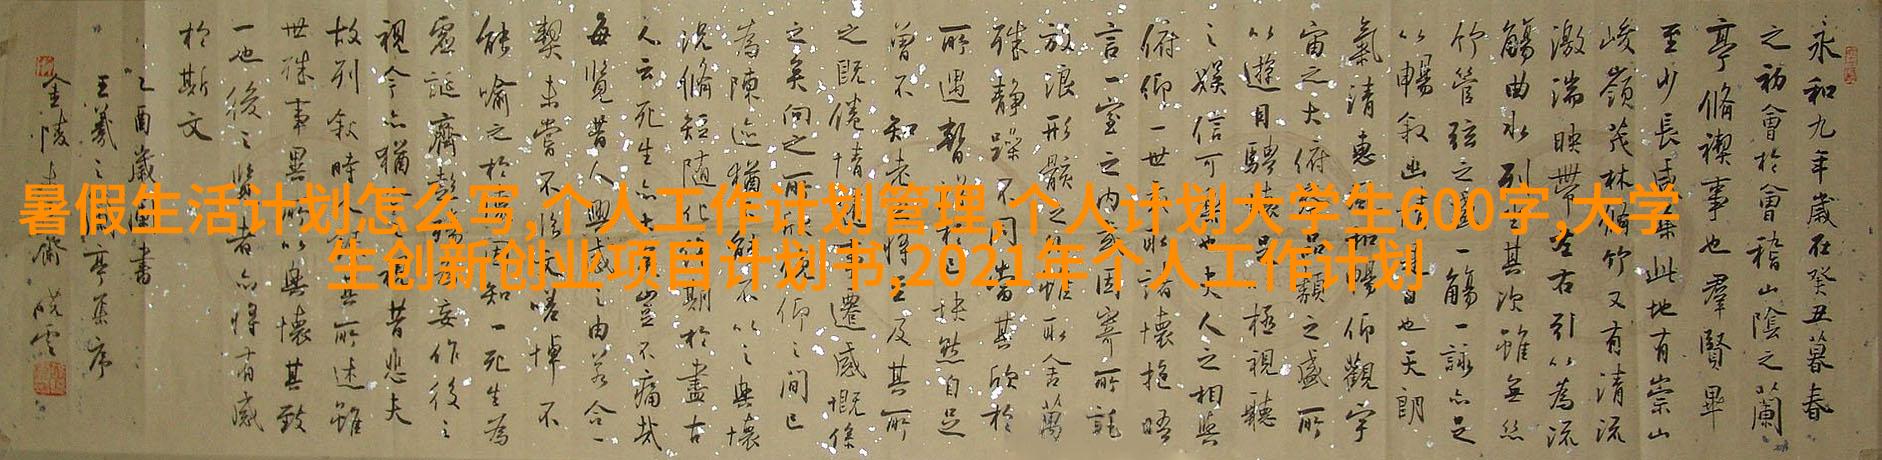 暑假生活计划怎么写,个人工作计划管理,个人计划大学生600字,大学
生创新创业项目计划书,2021年个人工作计划
永和九年歲在癸丑暮春
之初會於會稽山陰之蘭
亭脩禊事也羣賢畢
至少長咸集此地有崇山
峻嶺茂林脩竹又有清流
激湍映帶左右引以為流
觴曲水列坐其次雖無絲
竹管弦之盛一觴一詠亦足
以暢敘幽情是日也天朗
氣清惠風和暢仰觀宇
宙之大俯察品類之盛所
以遊目騁懷足以極視聽
之娛信可樂也夫人之相與
俯仰一世或取諸懷抱晤
言一室之內或因寄所託
放浪形骸之外雖取舍萬
殊靜躁不同當其欣於
所遇暫得於己快然自足
曾不知老之將至及其所
之既倦情隨事遷感慨係
之矣向之所欣俛仰之間已
為陳迹猶不能不以之興懷
況脩短隨化終期於盡古
人云死生亦大矣豈不痛哉
每覽昔人興感之由若合一
契未嘗不臨文嗟悼不
能喻之於懷固知一死生為
虛誕齊彭殤為妄作後之
視今亦猶今之視昔悲夫
故列敘時人錄其所述雖
世殊事異所以興懷其致
一也後之覽者亦將有感
於斯文
乙酉歲書
王羲之蘭亭集序
金陵齋